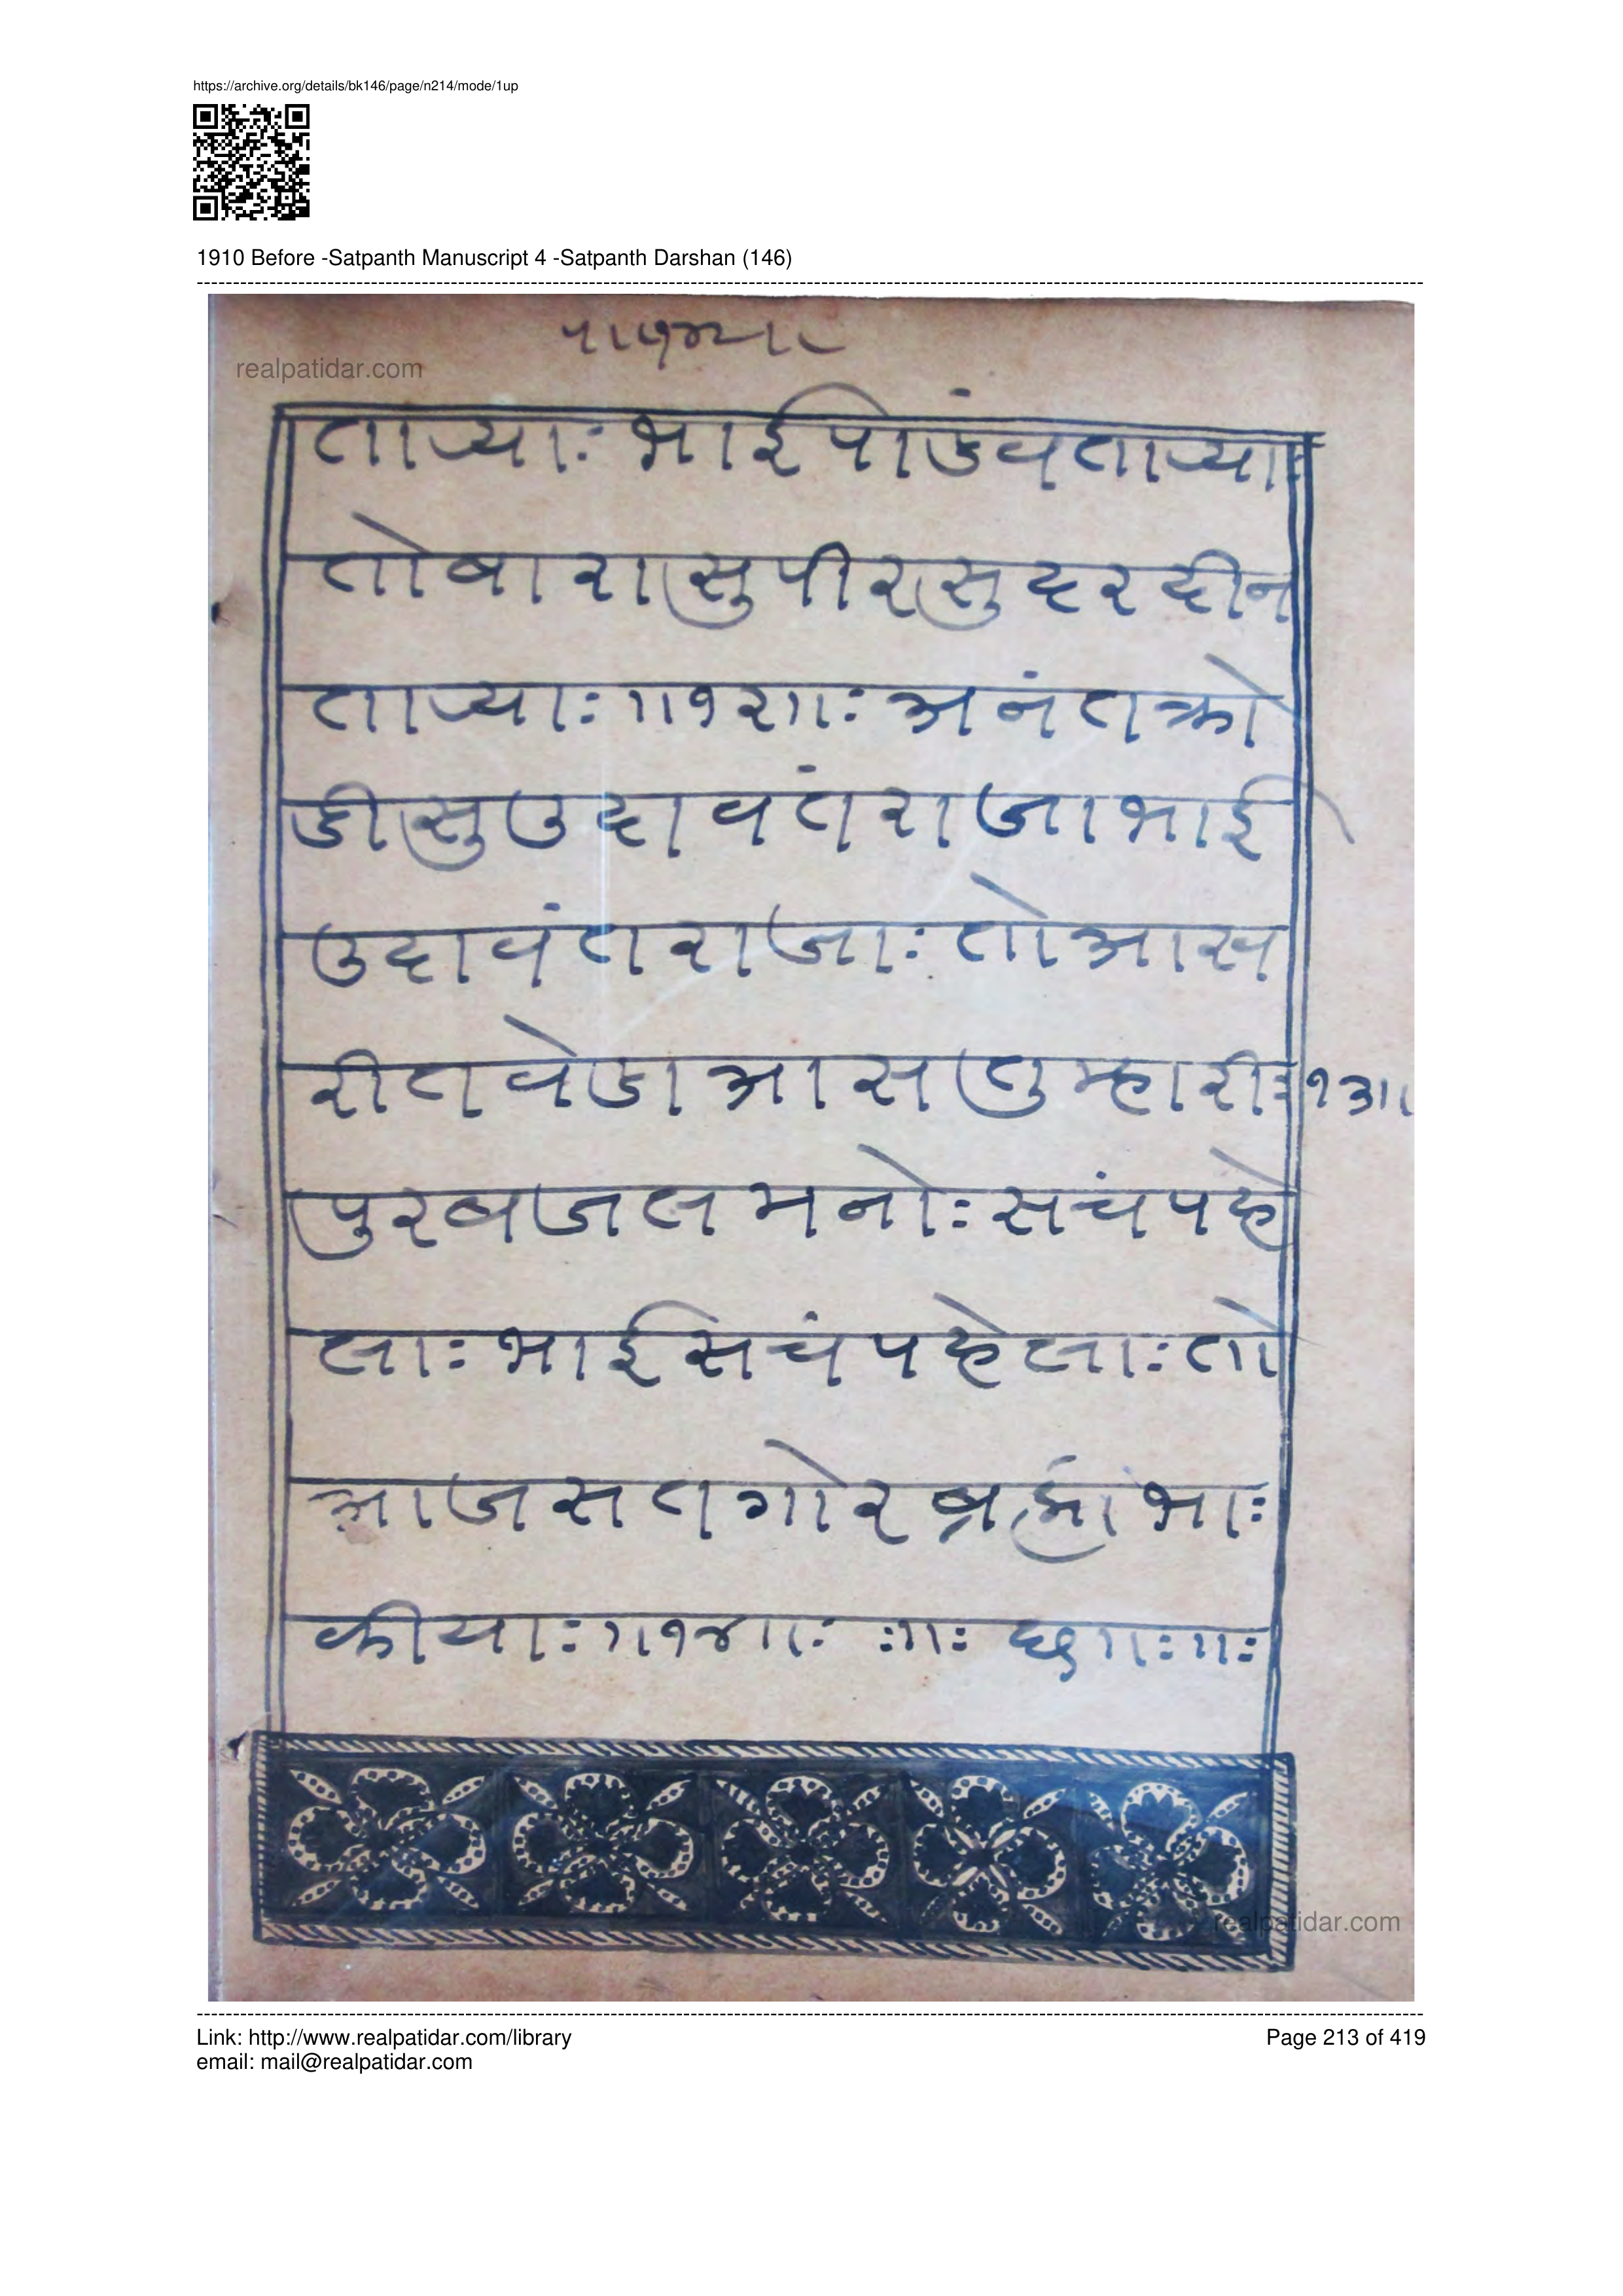 https://archive.org/details/bk146/page/n214/mode/1up
1910 Before -Satpanth Manuscript 4 -Satpanth Darshan (146)
realpatidar.com
ताऱ्याः भाई पांडव ताऱ्याः
तो बारासु पीर सुदरदीन
ताऱ्याः ॥१२॥ः अनंत क्रो
डीसु उदावंत राजा भाई
उदावंत राजाः तो आस
री त वेडा आस तुम्हारीः १३॥
पुरब जल मनोः सचं पहे
लाः भाई सचं पहेलाः तो
आज सतगोर ब्रह्मा भाः
कीयाः ॥१४॥ः ः॥ः छ॥ः॥ः
realpatidar.com
Link: http://www.realpatidar.com/library
Page 213 of 419
email: mail@realpatidar.com